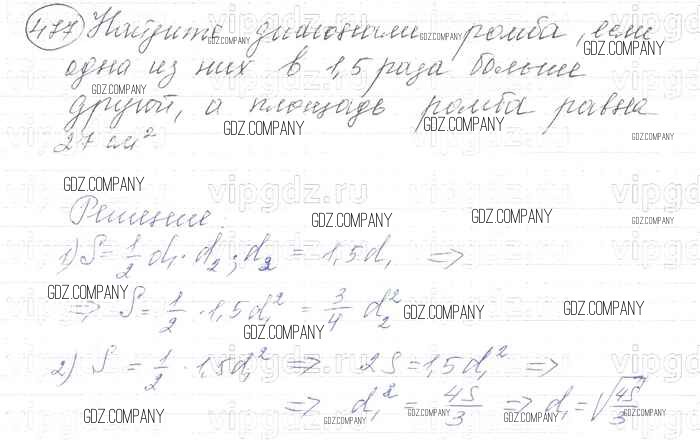 477 Найдите диагонали ромба, если
одна из них в 1,5 раза больше
другой, а площадь ромба равна
27 см².
Решение:
1) S = 1/2 d₁ · d₂ ; d₂ = 1,5 d₁ =>
=> S = 1/2 · 1,5 d₁² = 3/4 d₂²
2) S = 1/2 · 1,5 d₁² => 2S = 1,5 d₁² =>
=> d₁² = 4S/3 => d₁ = √(4S/3)
GDZ.COMPANY
vipgdz.ru